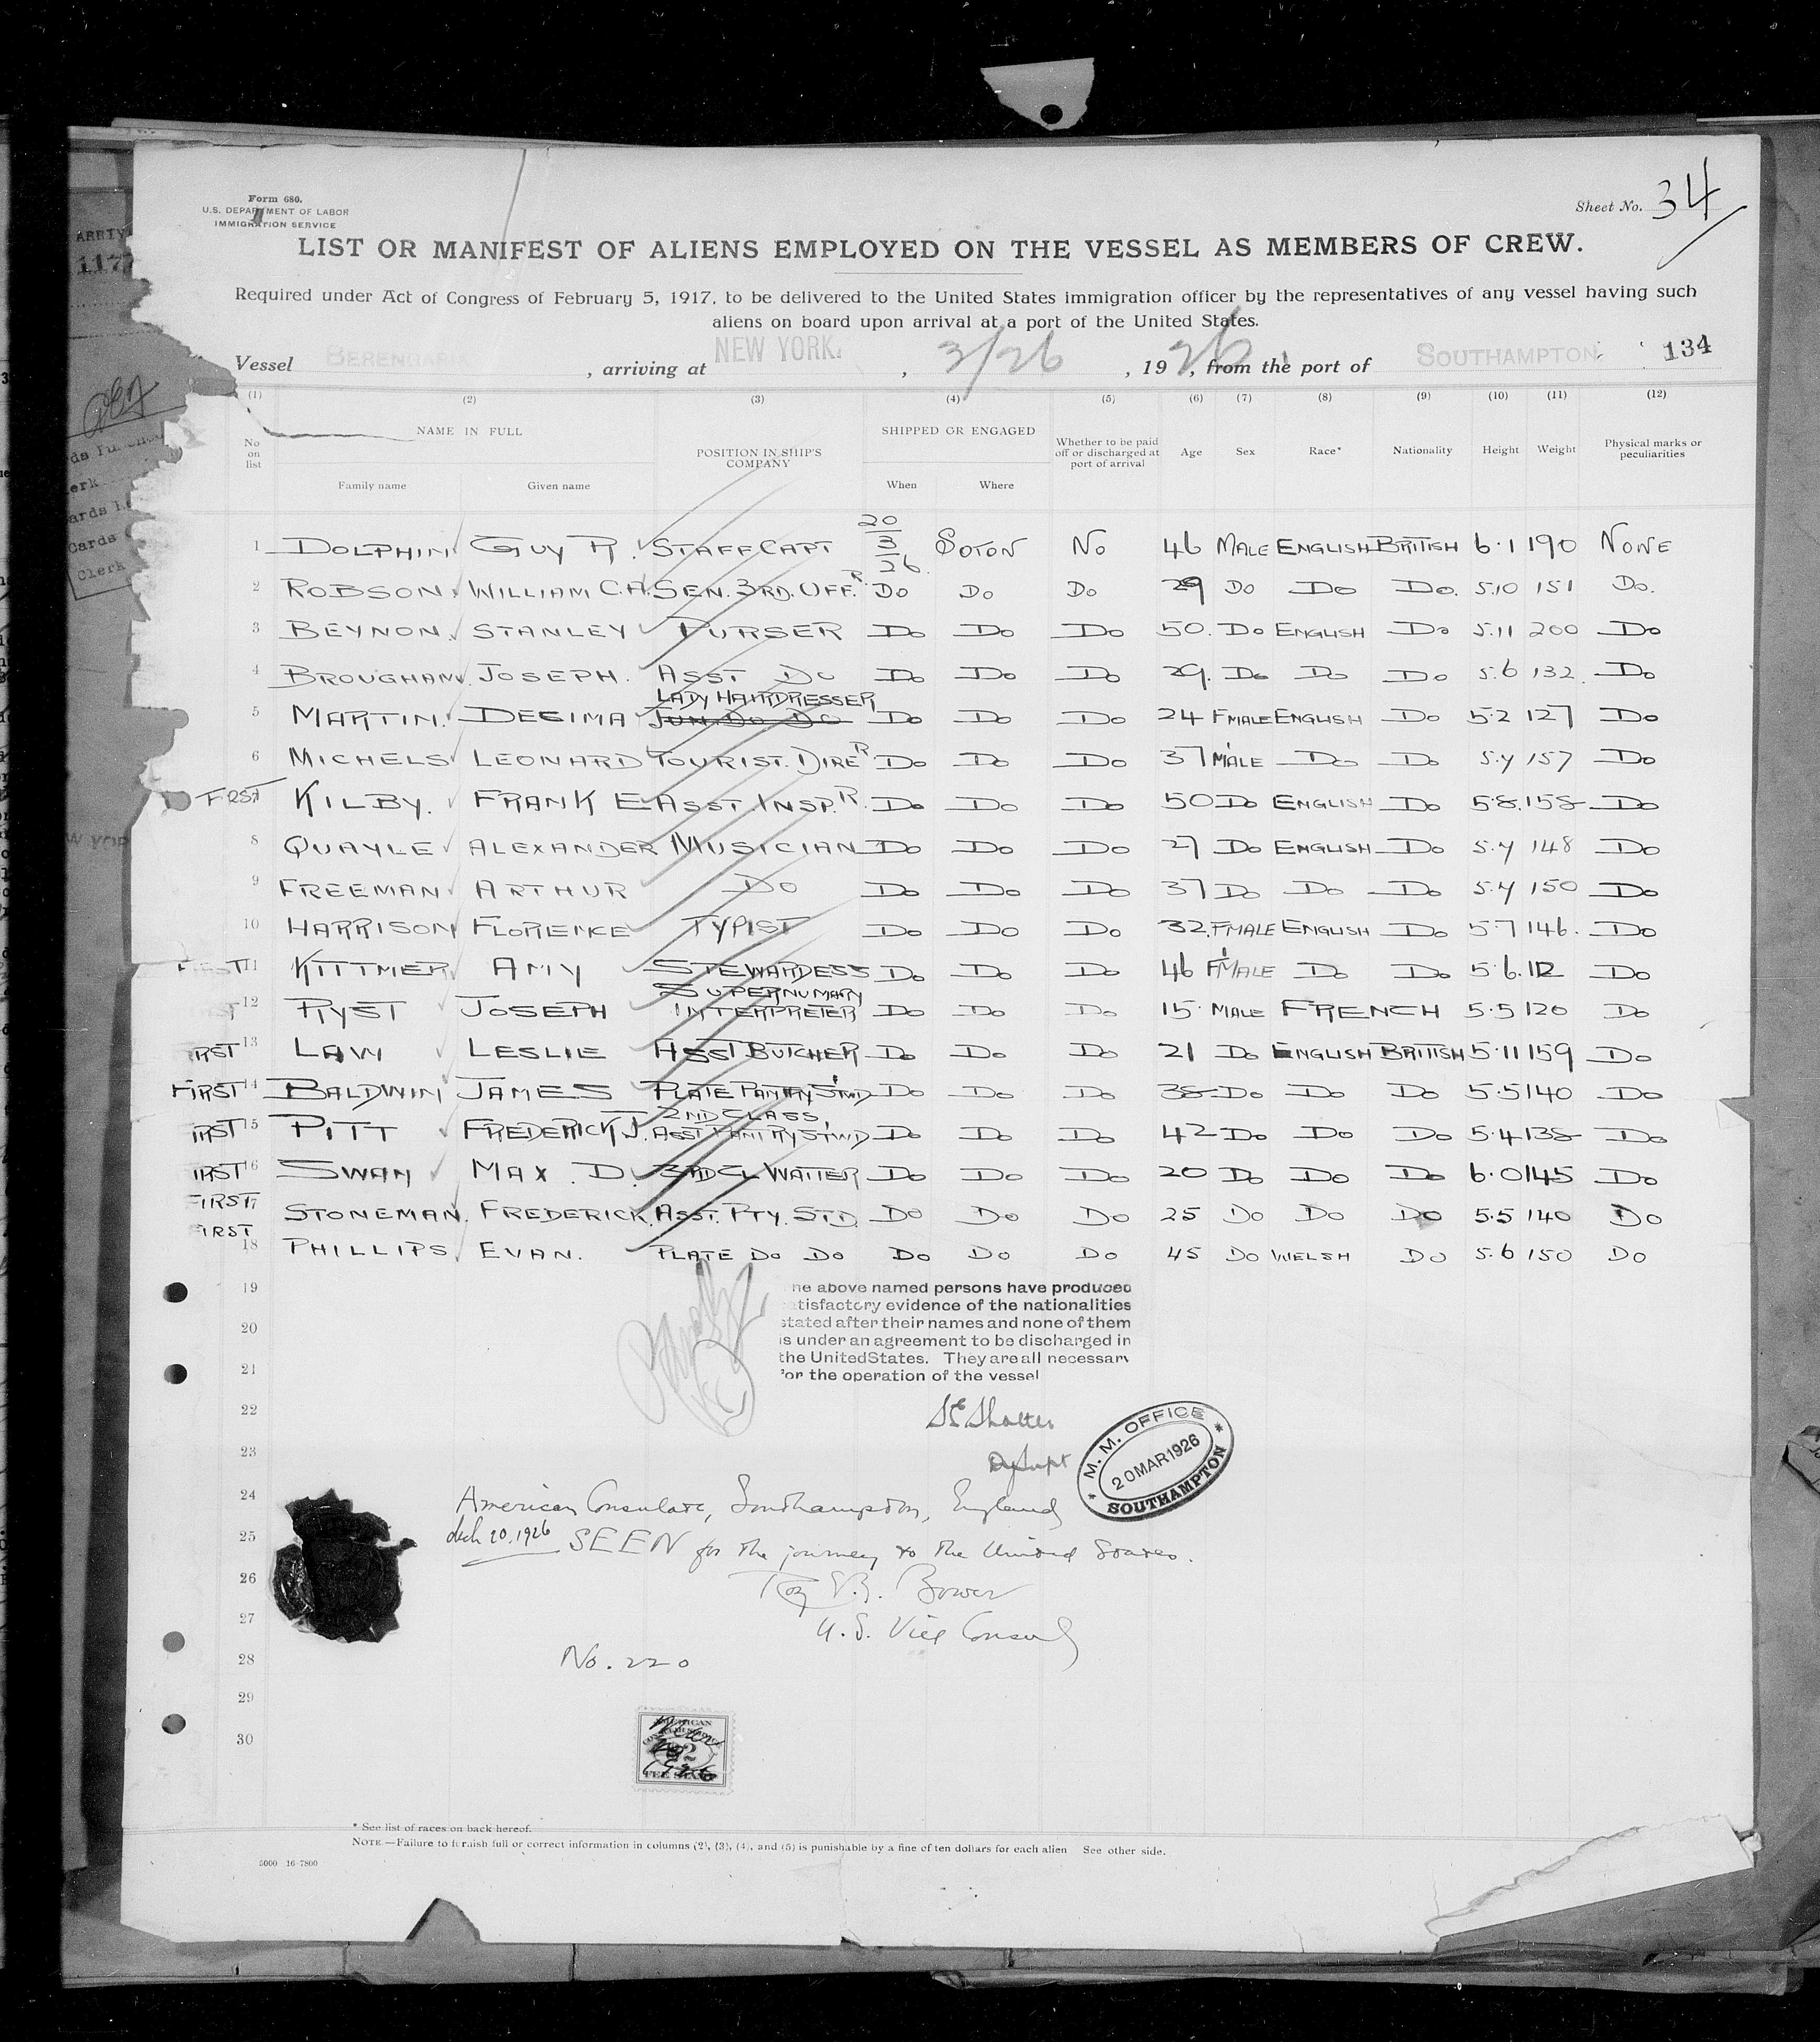 Form 680.
U.S. DEPARTMENT OF LABOR
IMMIGRATION SERVICE
Sheet No. 34
LIST OR MANIFEST OF ALIENS EMPLOYED ON THE VESSEL AS MEMBERS OF CREW.
Required under Act of Congress of February 5, 1917, to be delivered to the United States immigration officer by the representatives of any vessel having such
aliens on board upon arrival at a port of the United States.
Vessel BERENGARIA, arriving at NEW YORK, 3/26, 1926, from the port of SOUTHAMPTON 134
(1) (2) (3) (4) (5) (6) (7) (8) (9) (10) (11) (12)
No on list NAME IN FULL Family name Given name POSITION IN SHIP'S COMPANY SHIPPED OR ENGAGED When Where Whether to be paid off or discharged at port of arrival Age Sex Race* Nationality Height Weight Physical marks or peculiarities
1 DOLPHIN GUY R. STAFF CAPT 20/3/26 SOTON NO 46 MALE ENGLISH BRITISH 6.1 190 NONE
2 ROBSON. WILLIAM C.H. SEN. 3RD. OFF.R DO DO DO 29 DO DO DO. 5.10 151 DO.
3 BEYNON. STANLEY PURSER DO DO DO 50. DO ENGLISH DO 5.11 200 DO
4 BROUGHAM JOSEPH. ASST DO DO DO DO 29. DO DO DO 5.6 132. DO
LADY HAIRDRESSER
5 MARTIN. DECIMA JUN. DO. DO DO DO DO 24 FMALE ENGLISH DO 5.2 127 DO
6 MICHELS LEONARD TOURIST. DIRE R DO DO DO 37 MALE DO DO 5.4 157 DO
FIRST KILBY. FRANK E ASST. INSP.R. DO DO DO 50 DO ENGLISH DO 5.8. 158 DO
8 QUAYLE ALEXANDER MUSICIAN DO DO DO 27 DO ENGLISH DO 5.4 148 DO
9 FREEMAN ARTHUR DO DO DO DO 37 DO DO DO 5.4 150 DO
10 HARRISON FLORENCE TYPIST DO DO DO 32. FMALE ENGLISH DO 5.7 146. DO
FIRST 11 KITTMER AMY STEWARDESS DO DO DO 46 FMALE DO DO 5.6. 112 DO
SUPERNUMARY
12 RYST JOSEPH INTERPRETER DO DO DO 15. MALE FRENCH 5.5 120 DO
IRST 13 LAW LESLIE ASST BUTCHER DO DO DO 21 DO ENGLISH BRITISH 5.11 159 DO
FIRST 14 BALDWIN JAMES PLATE PANTRY STWD DO DO DO 38 DO DO DO 5.5 140 DO
2ND CLASS
IRST 15 PITT FREDERICK J. ASST PANTRY STWD DO DO DO 42 DO DO DO 5.4 138 DO
IRST 16 SWAN MAX. D. 3RD CL WAITER DO DO DO 20 DO DO DO 6.0 145 DO
FIRST 17 STONEMAN. FREDERICK. ASST. PTY. STD. DO DO DO 25 DO DO DO 5.5 140 DO
FIRST 18 PHILLIPS. EVAN. PLATE DO DO DO DO DO 45 DO WELSH DO 5.6 150 DO
19
20
21
22
23
24
25
26
27
28
29
30
he above named persons have produced
atisfactory evidence of the nationalities
stated after their names and none of them
is under an agreement to be discharged in
the United States. They are all necessary
for the operation of the vessel
M. M. OFFICE
20 MAR 1926
SOUTHAMPTON
American Consulate, Southampton, England
Mch 20, 1926 SEEN for the journey to the United States.
Roy E.B. Bower
U.S. Vice Consul
No. 220
AMERICAN
FEE STAMP
* See list of races on back hereof.
NOTE.—Failure to furnish full or correct information in columns (2), (3), (4), and (5) is punishable by a fine of ten dollars for each alien See other side.
5000 16-7800